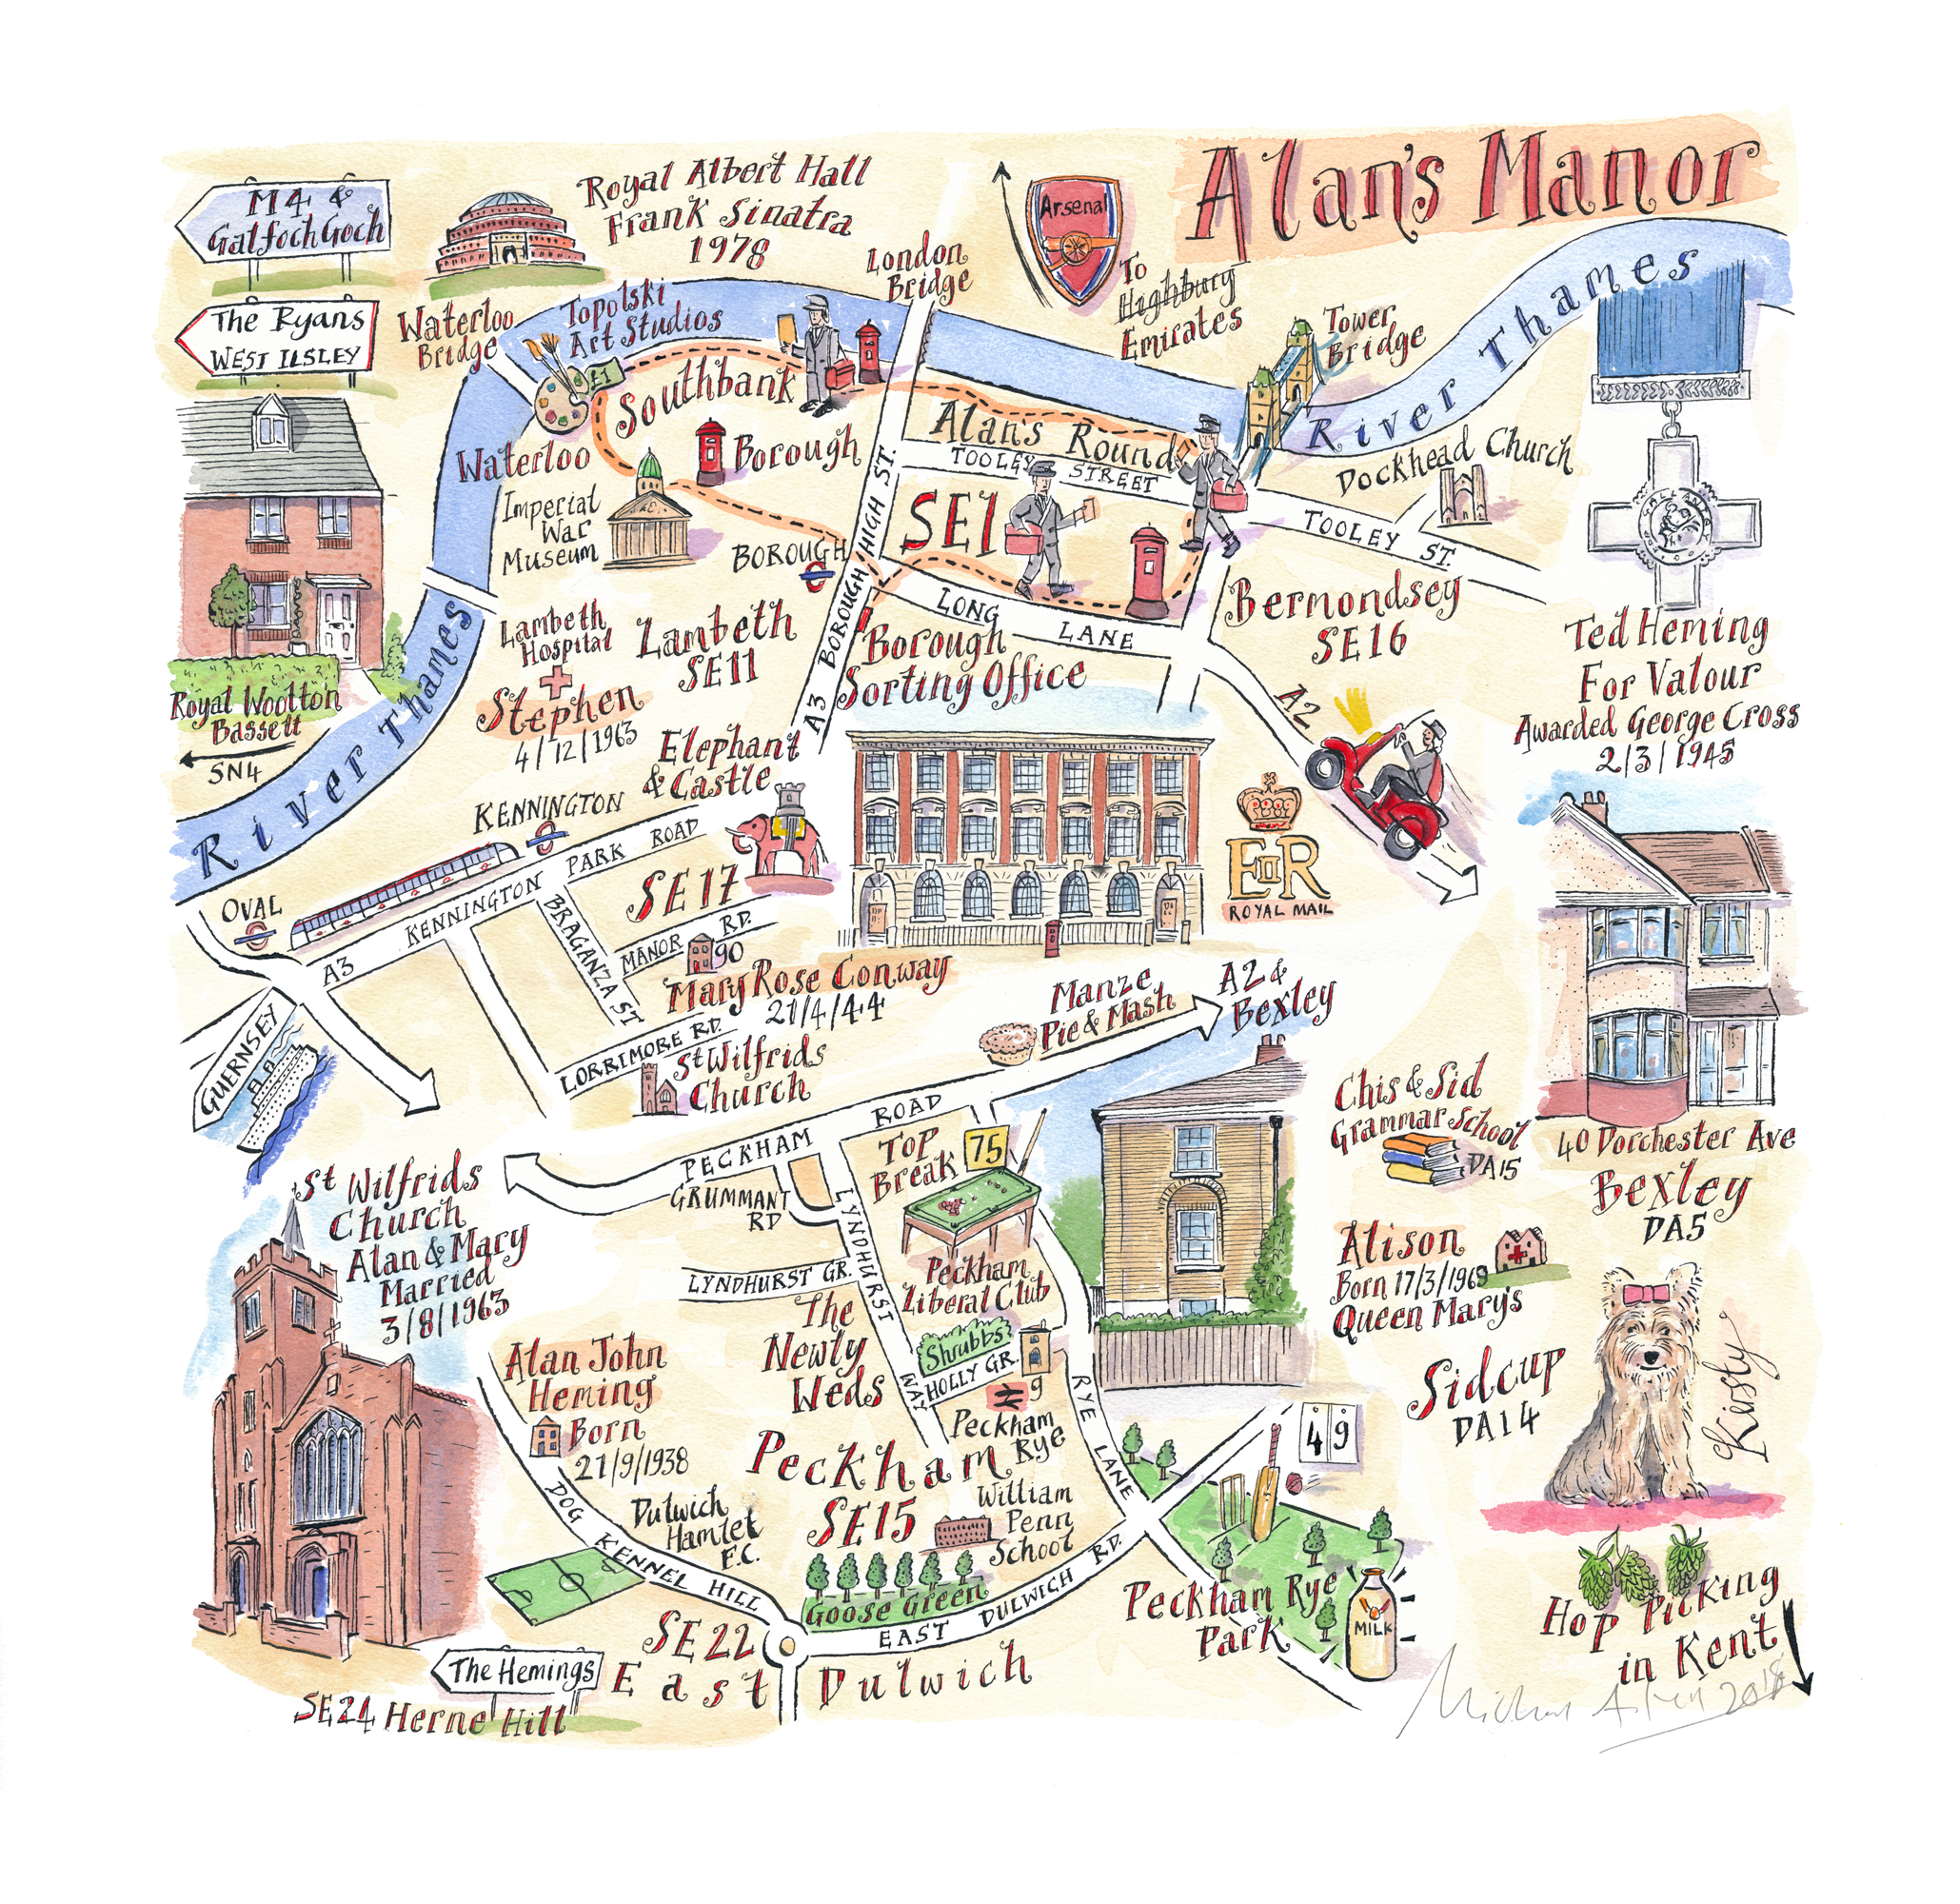 Alan's Manor
M4 &
Galfoch Goch
The Ryans
WEST ILSLEY
Royal Albert Hall
Frank Sinatra
1978
London
Bridge
Arsenal
To
Highbury
Emirates
Tower
Bridge
River Thames
Waterloo
Bridge
Topolski
Art Studios
£1
Southbank
Waterloo
Borough
Imperial
War
Museum
BOROUGH
A3 BOROUGH HIGH ST.
Alan's Round
TOOLEY STREET
SE1
LONG LANE
Dockhead Church
TOOLEY ST.
Bermondsey
SE16
FOR GALLANTRY
Ted Heming
For Valour
Awarded George Cross
2/3/1945
Royal Wootton
Bassett
SN4
River Thames
Lambeth
Hospital
Stephen
4/12/1963
Lambeth
SE11
Borough
Sorting Office
A2
Elephant
& Castle
KENNINGTON
OVAL
A3 KENNINGTON PARK ROAD
SE17
BRAGANZA ST
MANOR RD.
90
Mary Rose Conway
21/4/44
LORRIMORE RD.
St Wilfrids
Church
EIIR
ROYAL MAIL
GUERNSEY
Manze
Pie & Mash
A2 &
Bexley
PECKHAM ROAD
GRUMMANT
RD
Top
Break
75
Peckham
Liberal Club
LYNDHURST WAY
LYNDHURST GR.
The
Newly
Weds
Shrubbs
HOLLY GR.
9
Peckham
Rye
RYE LANE
Chis & Sid
Grammar School
DA15
40 Dorchester Ave
Bexley
DA5
Alison
Born 17/3/1969
Queen Mary's
Sidcup
DA14
Kirsty
St Wilfrids
Church
Alan & Mary
Married
3/8/1963
Alan John
Heming
Born
21/9/1938
DOG KENNEL HILL
Dulwich
Hamlet
F.C.
Peckham
SE15
William
Penn
School
Goose Green
EAST DULWICH RD.
49
Peckham Rye
Park
MILK
Hop Picking
in Kent
SE22
East Dulwich
The Hemings
SE24 Herne Hill